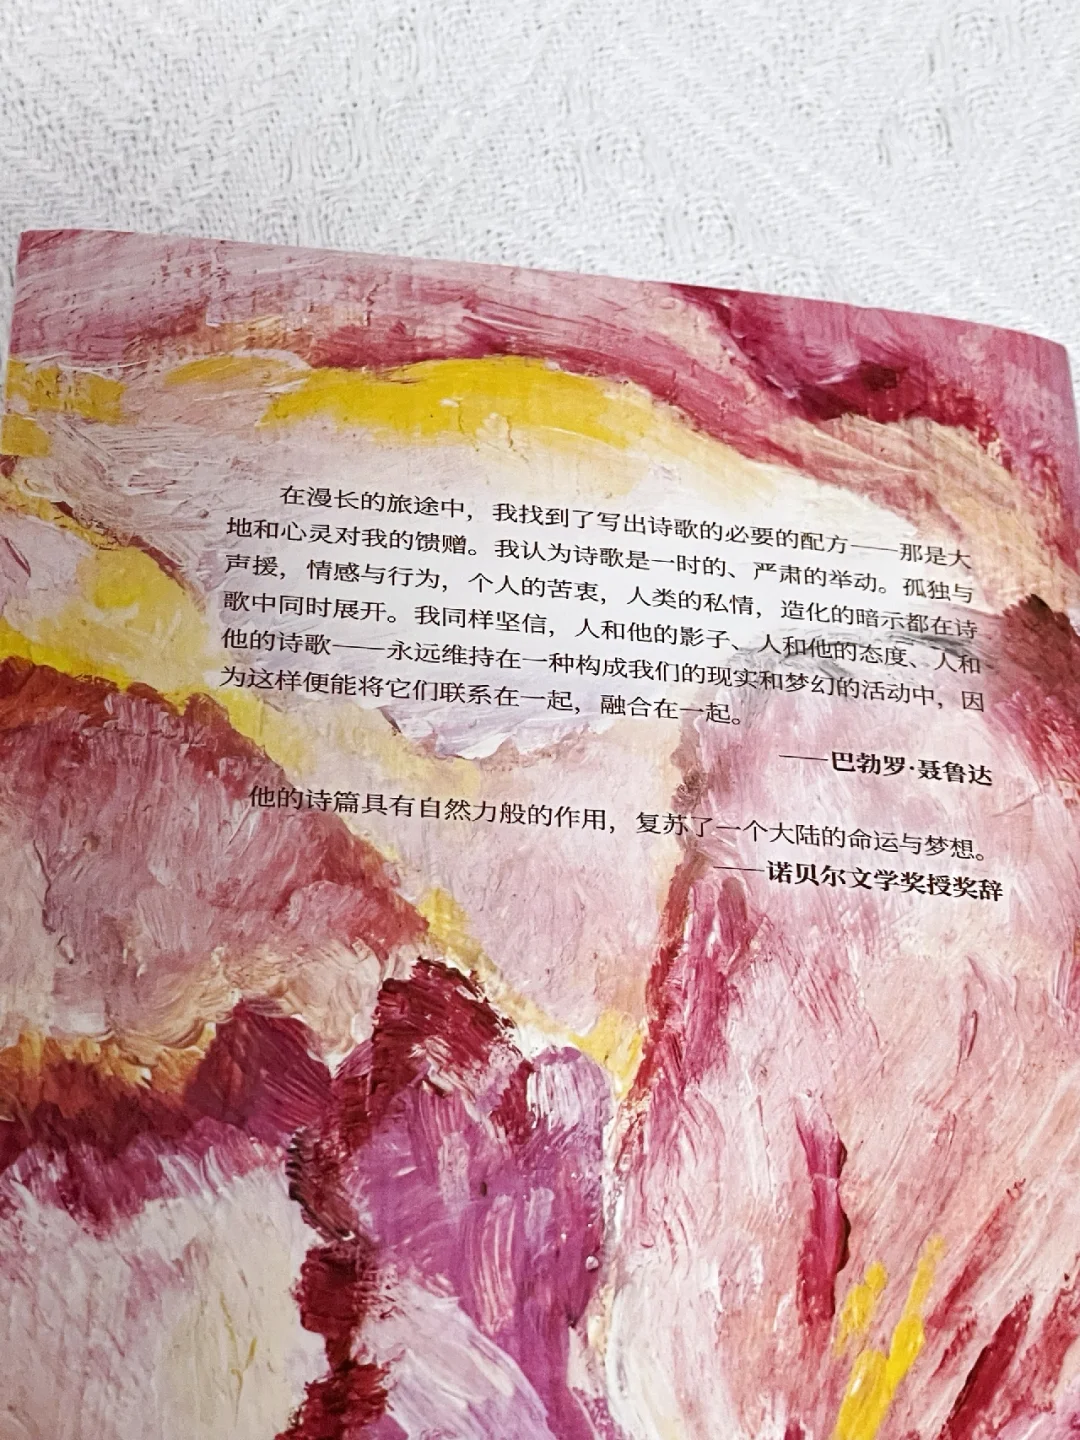 在漫长的旅途中，我找到了写出诗歌的必要的配方——那是大
地和心灵对我的馈赠。我认为诗歌是一时的、严肃的举动。孤独与
声援，情感与行为，个人的苦衷，人类的私情，造化的暗示都在诗
歌中同时展开。我同样坚信，人和他的影子、人和他的态度、人和
他的诗歌——永远维持在一种构成我们的现实和梦幻的活动中，因
为这样便能将它们联系在一起，融合在一起。
——巴勃罗·聂鲁达
他的诗篇具有自然力般的作用，复苏了一个大陆的命运与梦想。
——诺贝尔文学奖授奖辞